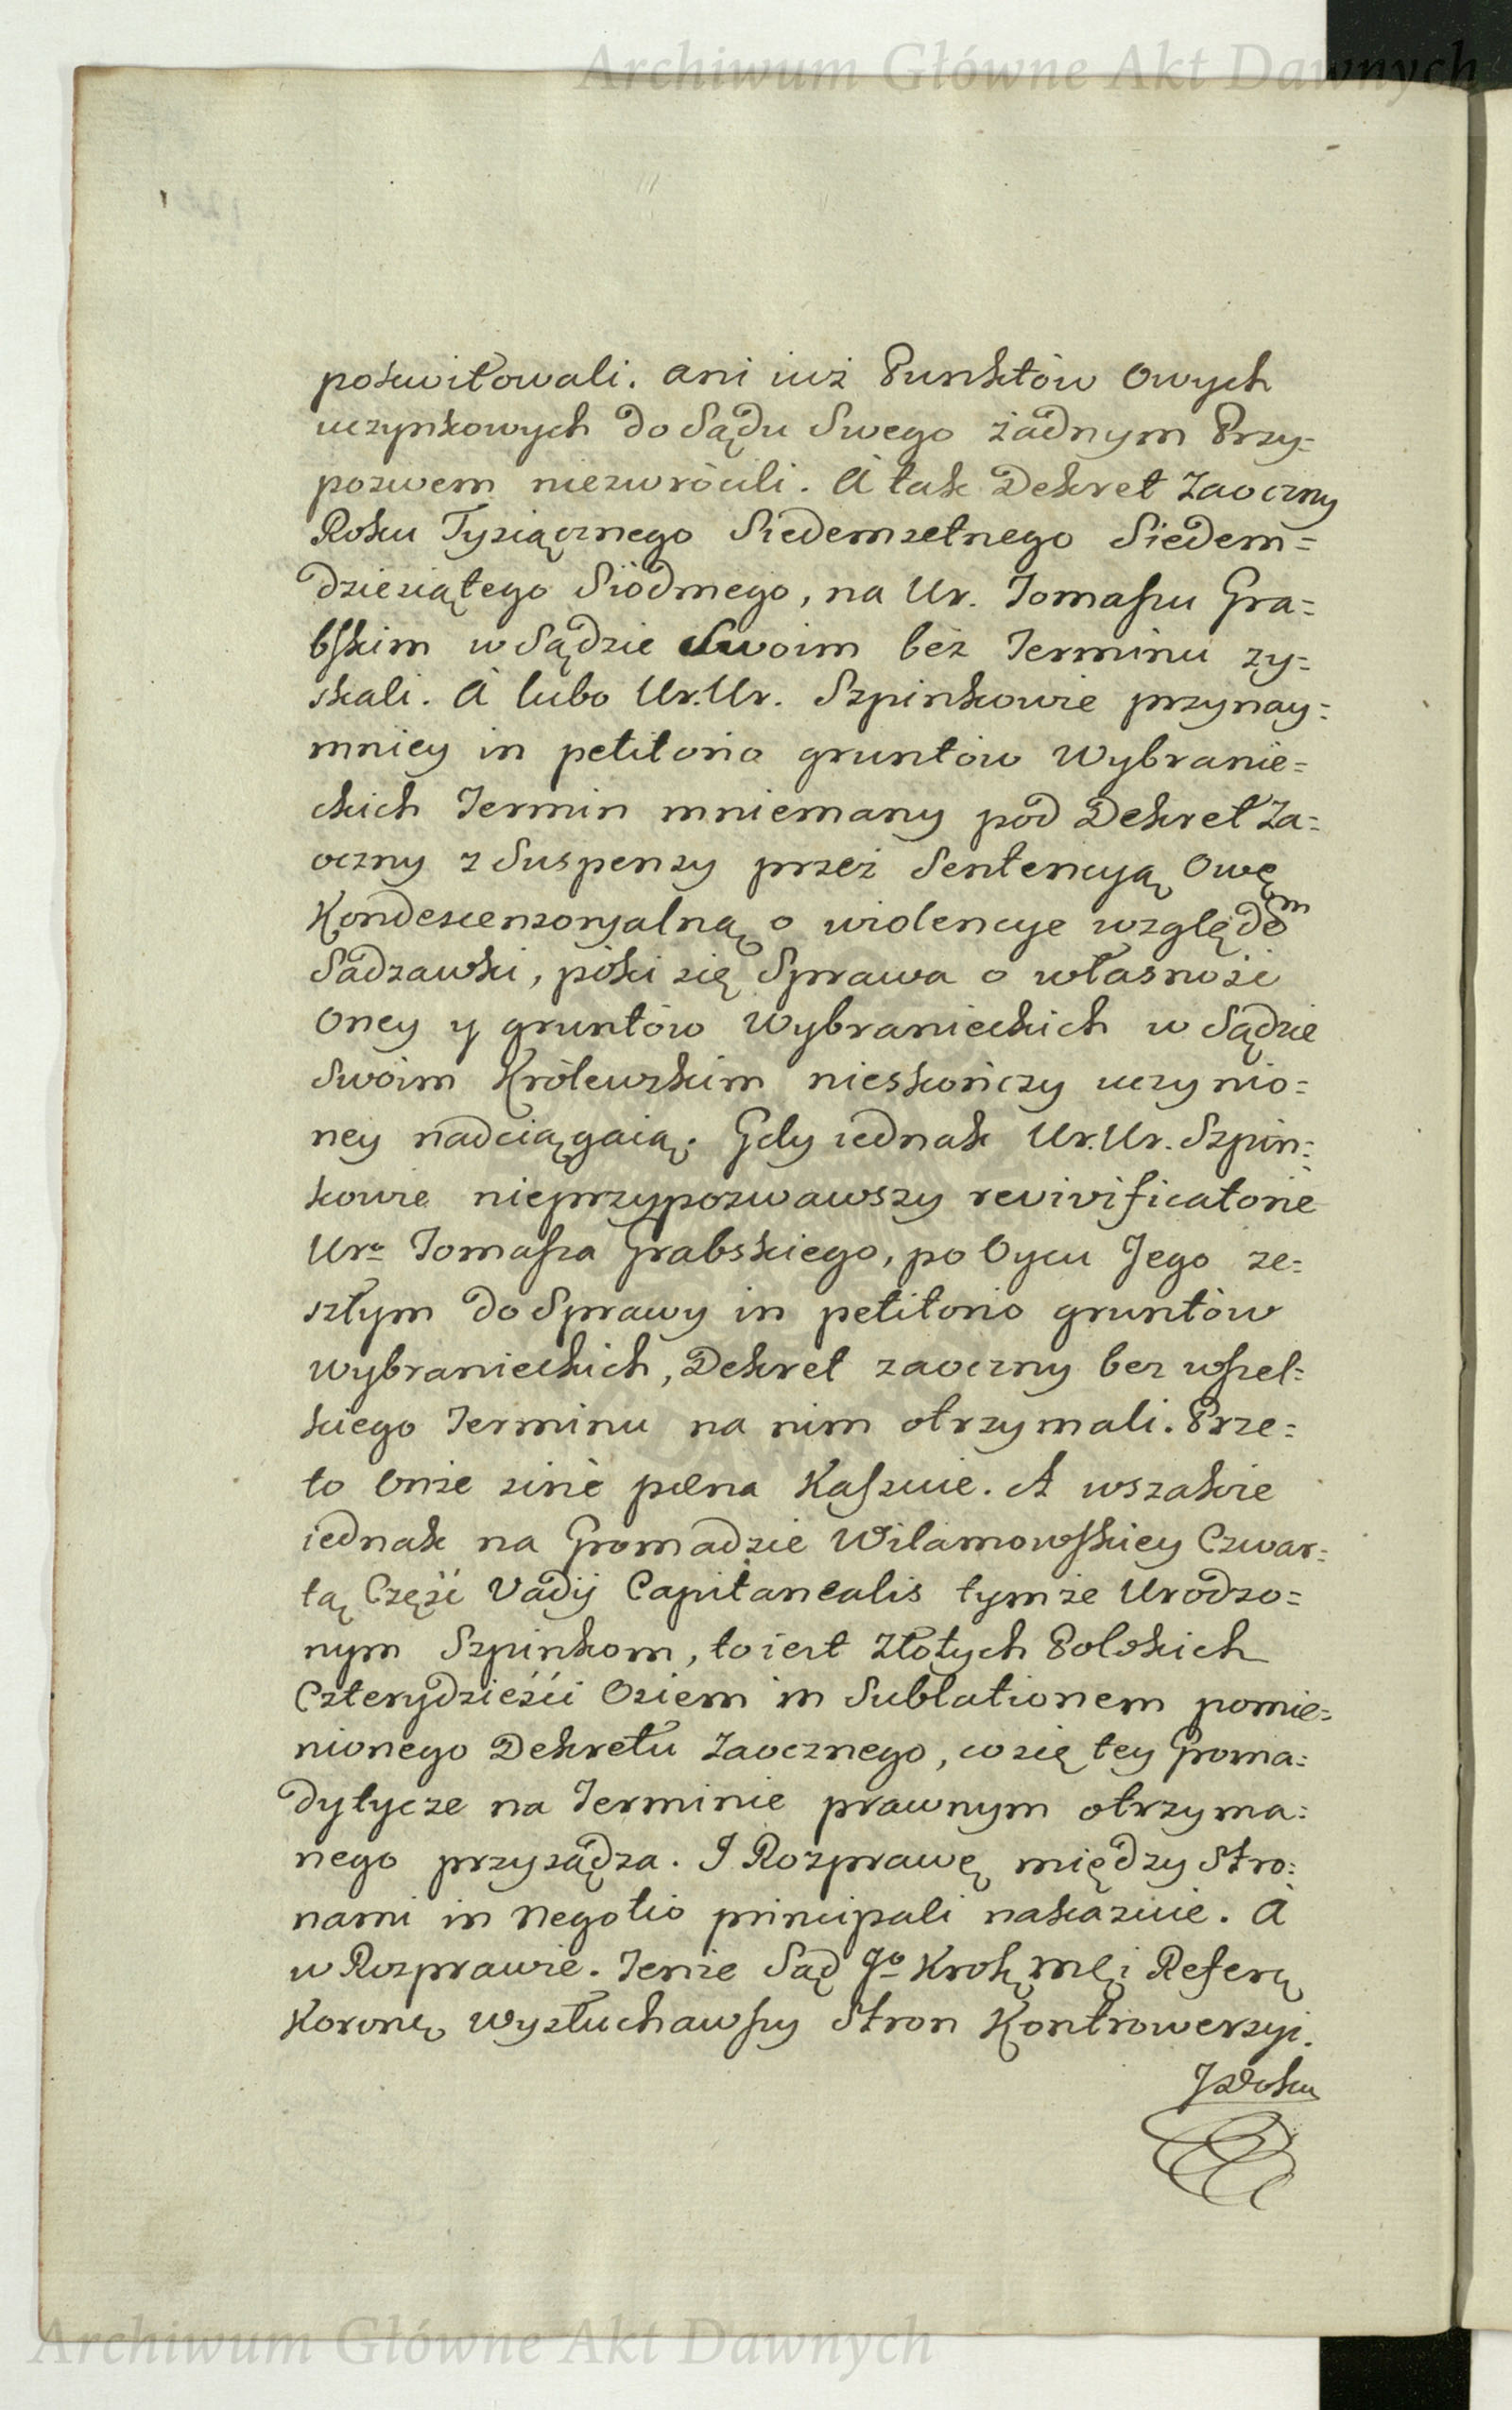 Archiwum Główne Akt Dawnych
pokwitowali. ani iuż Punktów Owych
uczynkowych do Sądu Swego żadnym Przy=
pozwem niezwrócili. A tak Dekret Zaoczny
Roku Tysiącznego Siedemsetnego Siedem=
dziesiątego Siódmego, na Ur. Tomaszu Gra=
bskim w Sądzie Swoim bez Terminu zy=
skali. A lubo Ur. Ur. Szpinkowie przynay=
mniey in petitorio gruntów Wybranie=
ckich Termin mniemany pod Dekret Za=
oczny z Suspensy przez Sentencyą Owę
Kondescensoryalną o wiolencye względem
Sadzawki, póki się Sprawa o własność
Oney y gruntów Wybranieckich w Sądzie
Swoim Królewskim nieskończy uczynio=
ney nadciągaią. Gdy iednak Ur. Ur. Szpin=
kowie nieprzypozwawszy revivificatorie
Uro Tomasza Grabskiego, po Oycu Jego ze=
szłym do Sprawy in petitorio gruntów
wybranieckich, Dekret zaoczny bez wszel=
kiego Terminu na nim otrzymali. Prze=
to Onże sine pœna Kassuie. A wszakże
iednak na Gromadzie Wilamowskiey Czwar=
tą Część Vadij Capitanealis tymże Urodzo=
nym Szpinkom, to iest Złotych Polskich
Czterydzieści Osiem in Sublationem pomie=
nionego Dekretu Zaocznego, co się tey Groma=
dy tycze na Terminie prawnym otrzyma=
nego przysądza. I Rozprawę między Stro=
nami in Negotio principali nakazuie. A
w Rozprawie. Tenże Sąd Jo Krok Mci Refer
Koronę wysłuchawszy Stron Kontrowersyi.
Archiwum Główne Akt Dawnych